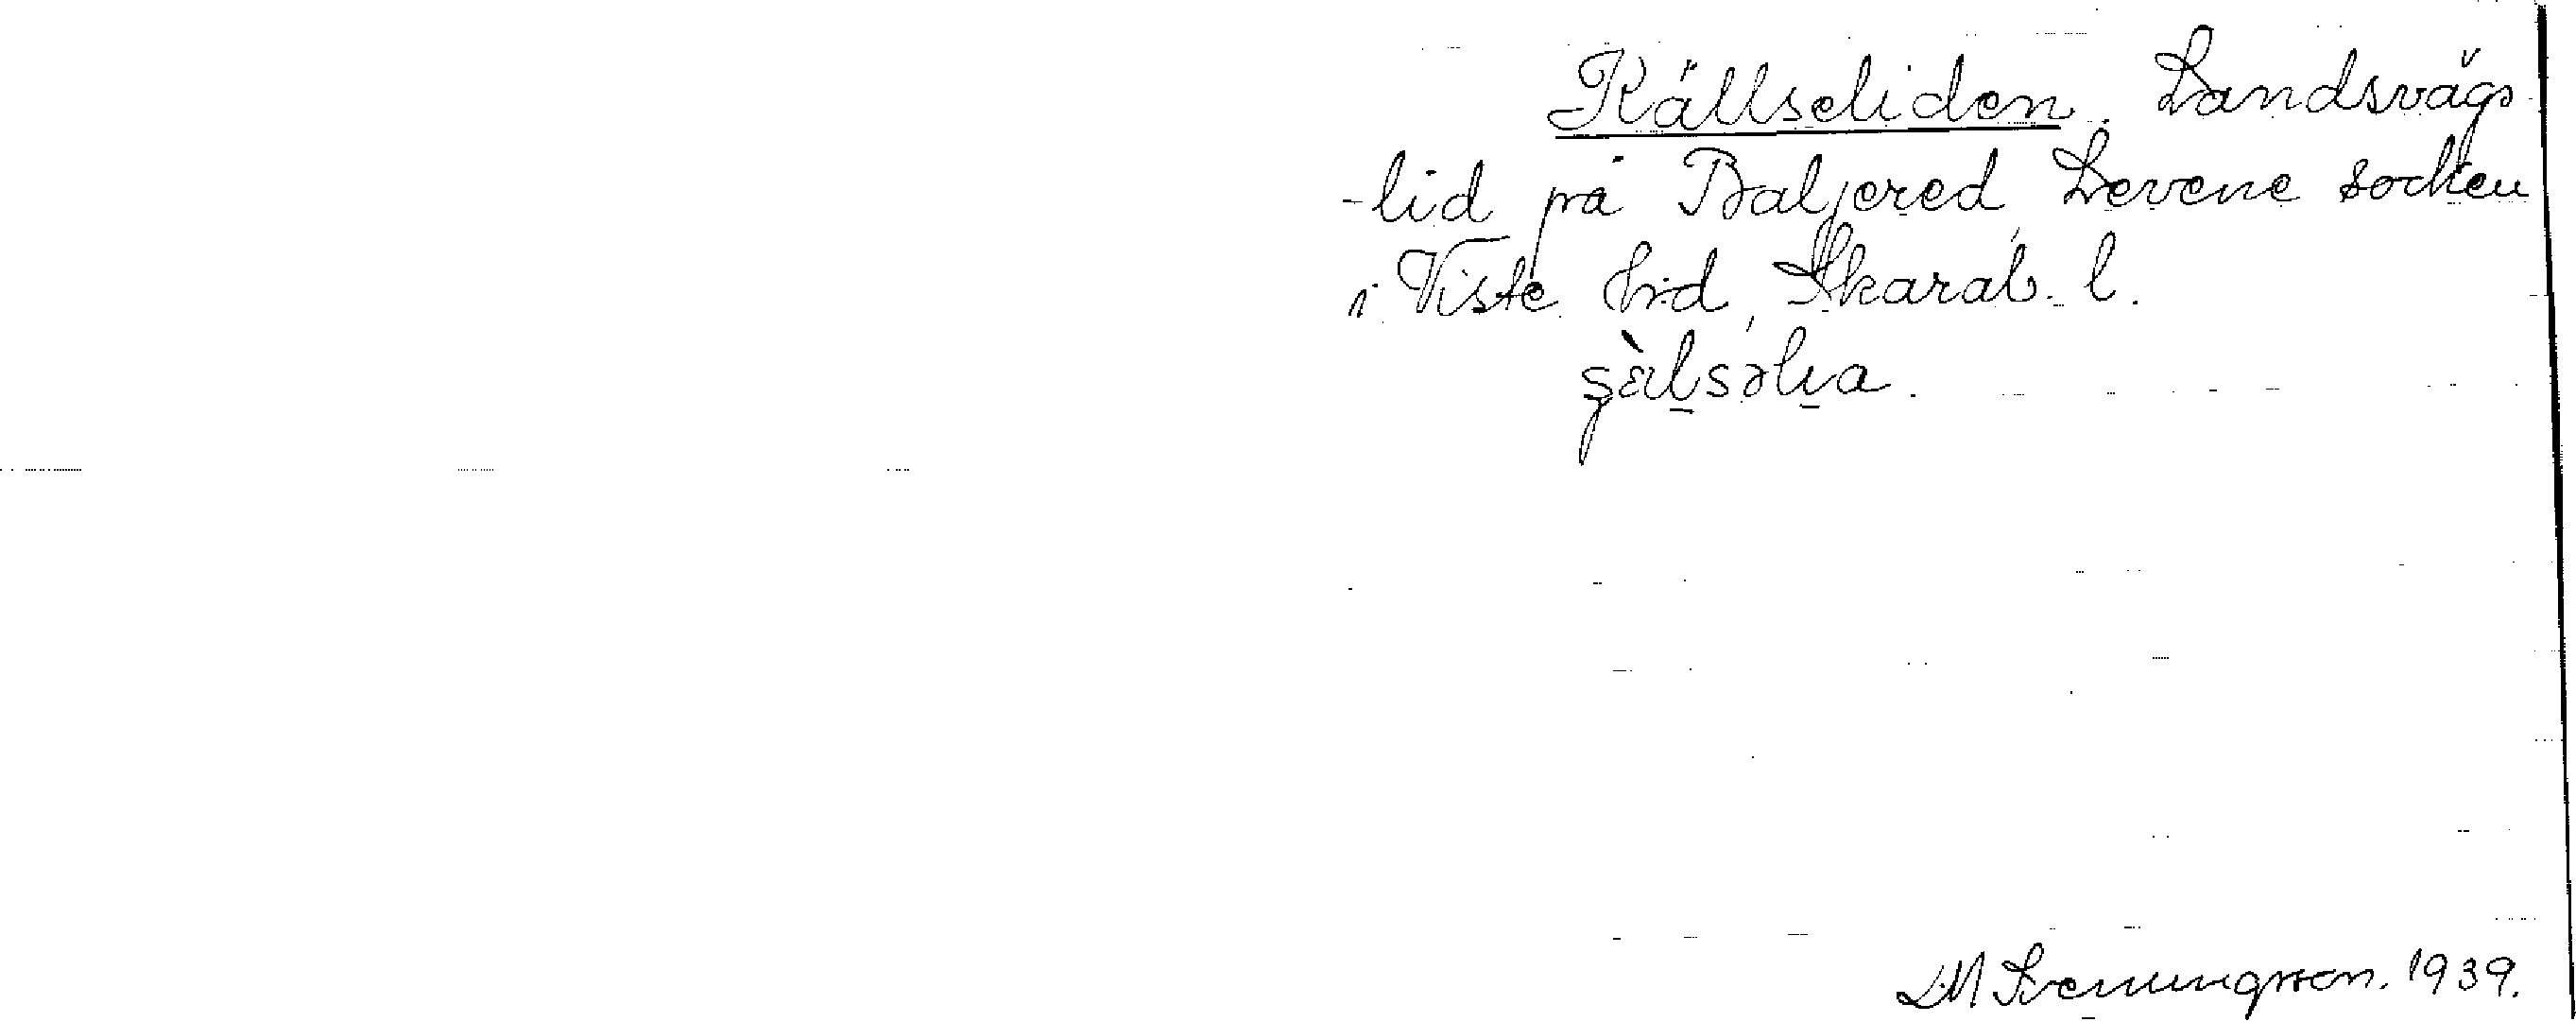 Källseliden. Landsvägs
-lid på Baljered, Levene socken
i Viste hrd, Skarab. l.
L.M Svenungsson. 1939.